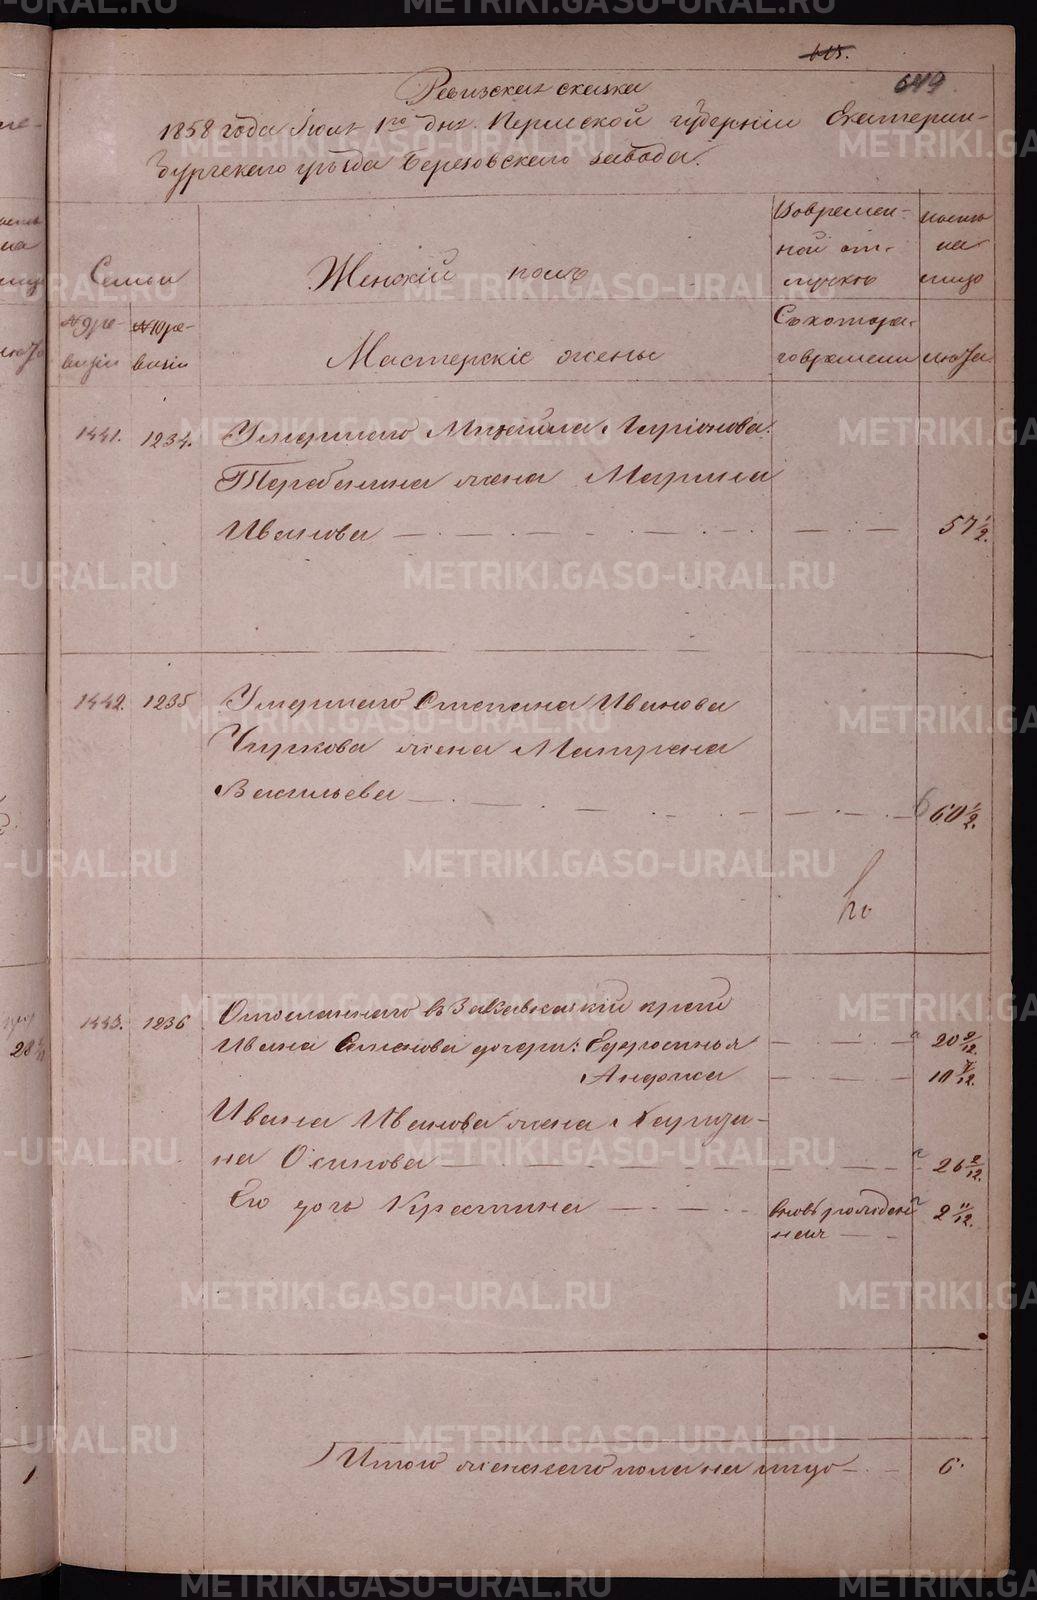 615.
649
Ревизская сказка
1858 года Июня 1го дня Пермской губерніи Екатерин-
бургскаго уѣзда Березовскаго завода.
Семьи
Женскій полъ
Во времен-
ной от-
лучкѣ
налицо
№ 9 ре-
визіи
№ 10 ре-
визіи
Мастерскіе жены
Съ котора-
го времени
лѣта
1441. 1234. Умершаго Михайла Ларіонова
Теребенина жена Марина
Иванова 57 1/2.
1442. 1235 Умершаго Степана Иванова
Чиркова жена Матрена
Васильева 60 1/2.
1443. 1236 Отосланнаго въ Закавказскій край
Ивана Семенова дочери: Ефросинья 20 9/12.
Анфиса
Ивана Иванова жена
на Осипова 26 2/12.
Его дочь Крестина вновь рожден-
ная 2 11/12.
Итого женскаго пола на лицо 6.
28
1
METRIKI.GASO-URAL.RU